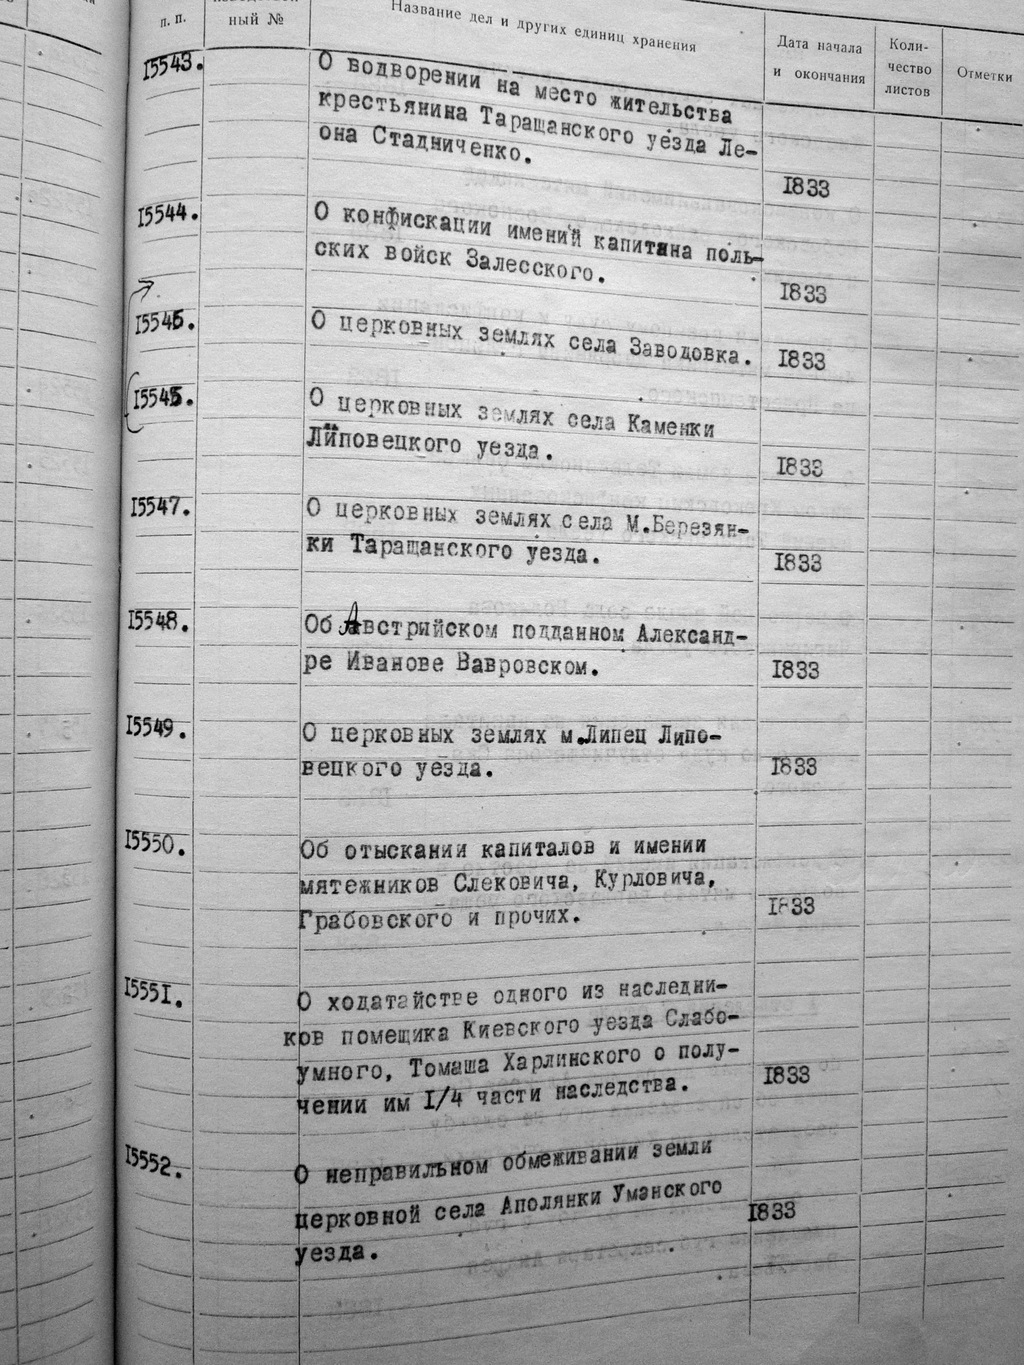 п. п.
ный №
Название дел и других единиц хранения
Дата начала
и окончания
Коли-
чество
листов
Отметки
15543.
О водворении на место жительства
крестьянина Таращанского уезда Ле-
она Стадниченко.
1833
15544.
О конфискации имений капитана поль-
ских войск Залесского.
1833
15545.
О церковных землях села Заводовка.
1833
О церковных землях села Каменки
Липовецкого уезда.
1833
15547.
О церковных землях села М.Березян-
ки Таращанского уезда.
1833
15548.
Об Австрийском подданном Александ-
ре Иванове Вавровском.
1833
15549.
О церковных землях м.Липец Липо-
вецкого уезда.
1833
15550.
Об отыскании капиталов и имении
мятежников Слековича, Курловича,
Грабовского и прочих.
1833
15551.
О ходатайстве одного из наследни-
ков помещика Киевского уезда Слабо-
умного, Томаша Харлинского о полу-
чении им 1/4 части наследства.
1833
15552.
О неправильном обмеживании земли
церковной села Аполянки Уманского
уезда.
1833